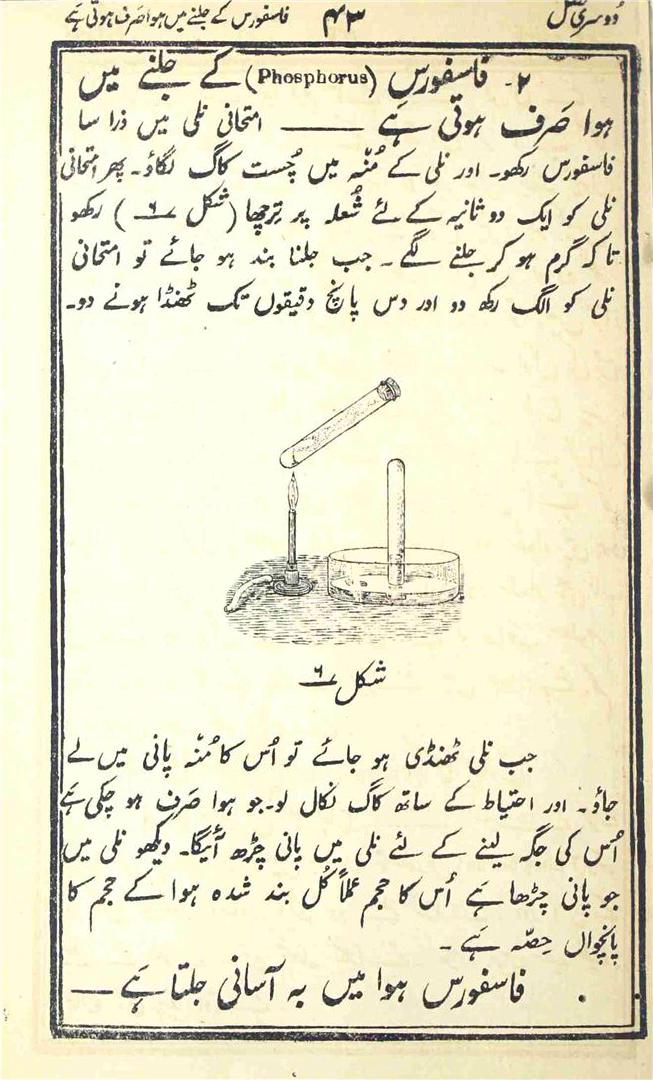 دوسری فصل ۴۳ فاسفورس کے جلنے میں ہوا صَرف ہوتی ہَے
۲۔ فاسفورس (Phosphorus) کے جلنے میں
ہوا صَرف ہوتی ہَے —— امتحانی نلی میں ذرا سا
فاسفورس رکھو۔ اور نلی کے مُنّہ میں چُست کاگ لگاؤ۔ پھر امتحانی
نلی کو ایک دو ثانیہ کے لئے شُعلہ پر تِرچھا (شکل ۶) رکھو
تاکہ گرم ہو کر جلنے لگے۔ جب جلنا بند ہو جائے تو امتحانی
نلی کو الگ رکھ دو اور دس پانچ دقیقوں تک ٹھنڈا ہونے دو۔
شکل ۶
جب نلی ٹھنڈی ہو جائے تو اُس کا مُنّہ پانی میں لے
جاؤ۔ اور احتیاط کے ساتھ کاگ نکال لو۔ جو ہوا صَرف ہو چکی ہَے
اُس کی جگہ لینے کے لئے نلی میں پانی چڑھ آئیگا۔ دیکھو نلی میں
جو پانی چڑھا ہَے اُس کا حجم عملاً کُل بند شدہ ہوا کے حجم کا
پانچواں حِصّہ ہَے۔
فاسفورس ہوا میں بہ آسانی جلتا ہَے ——